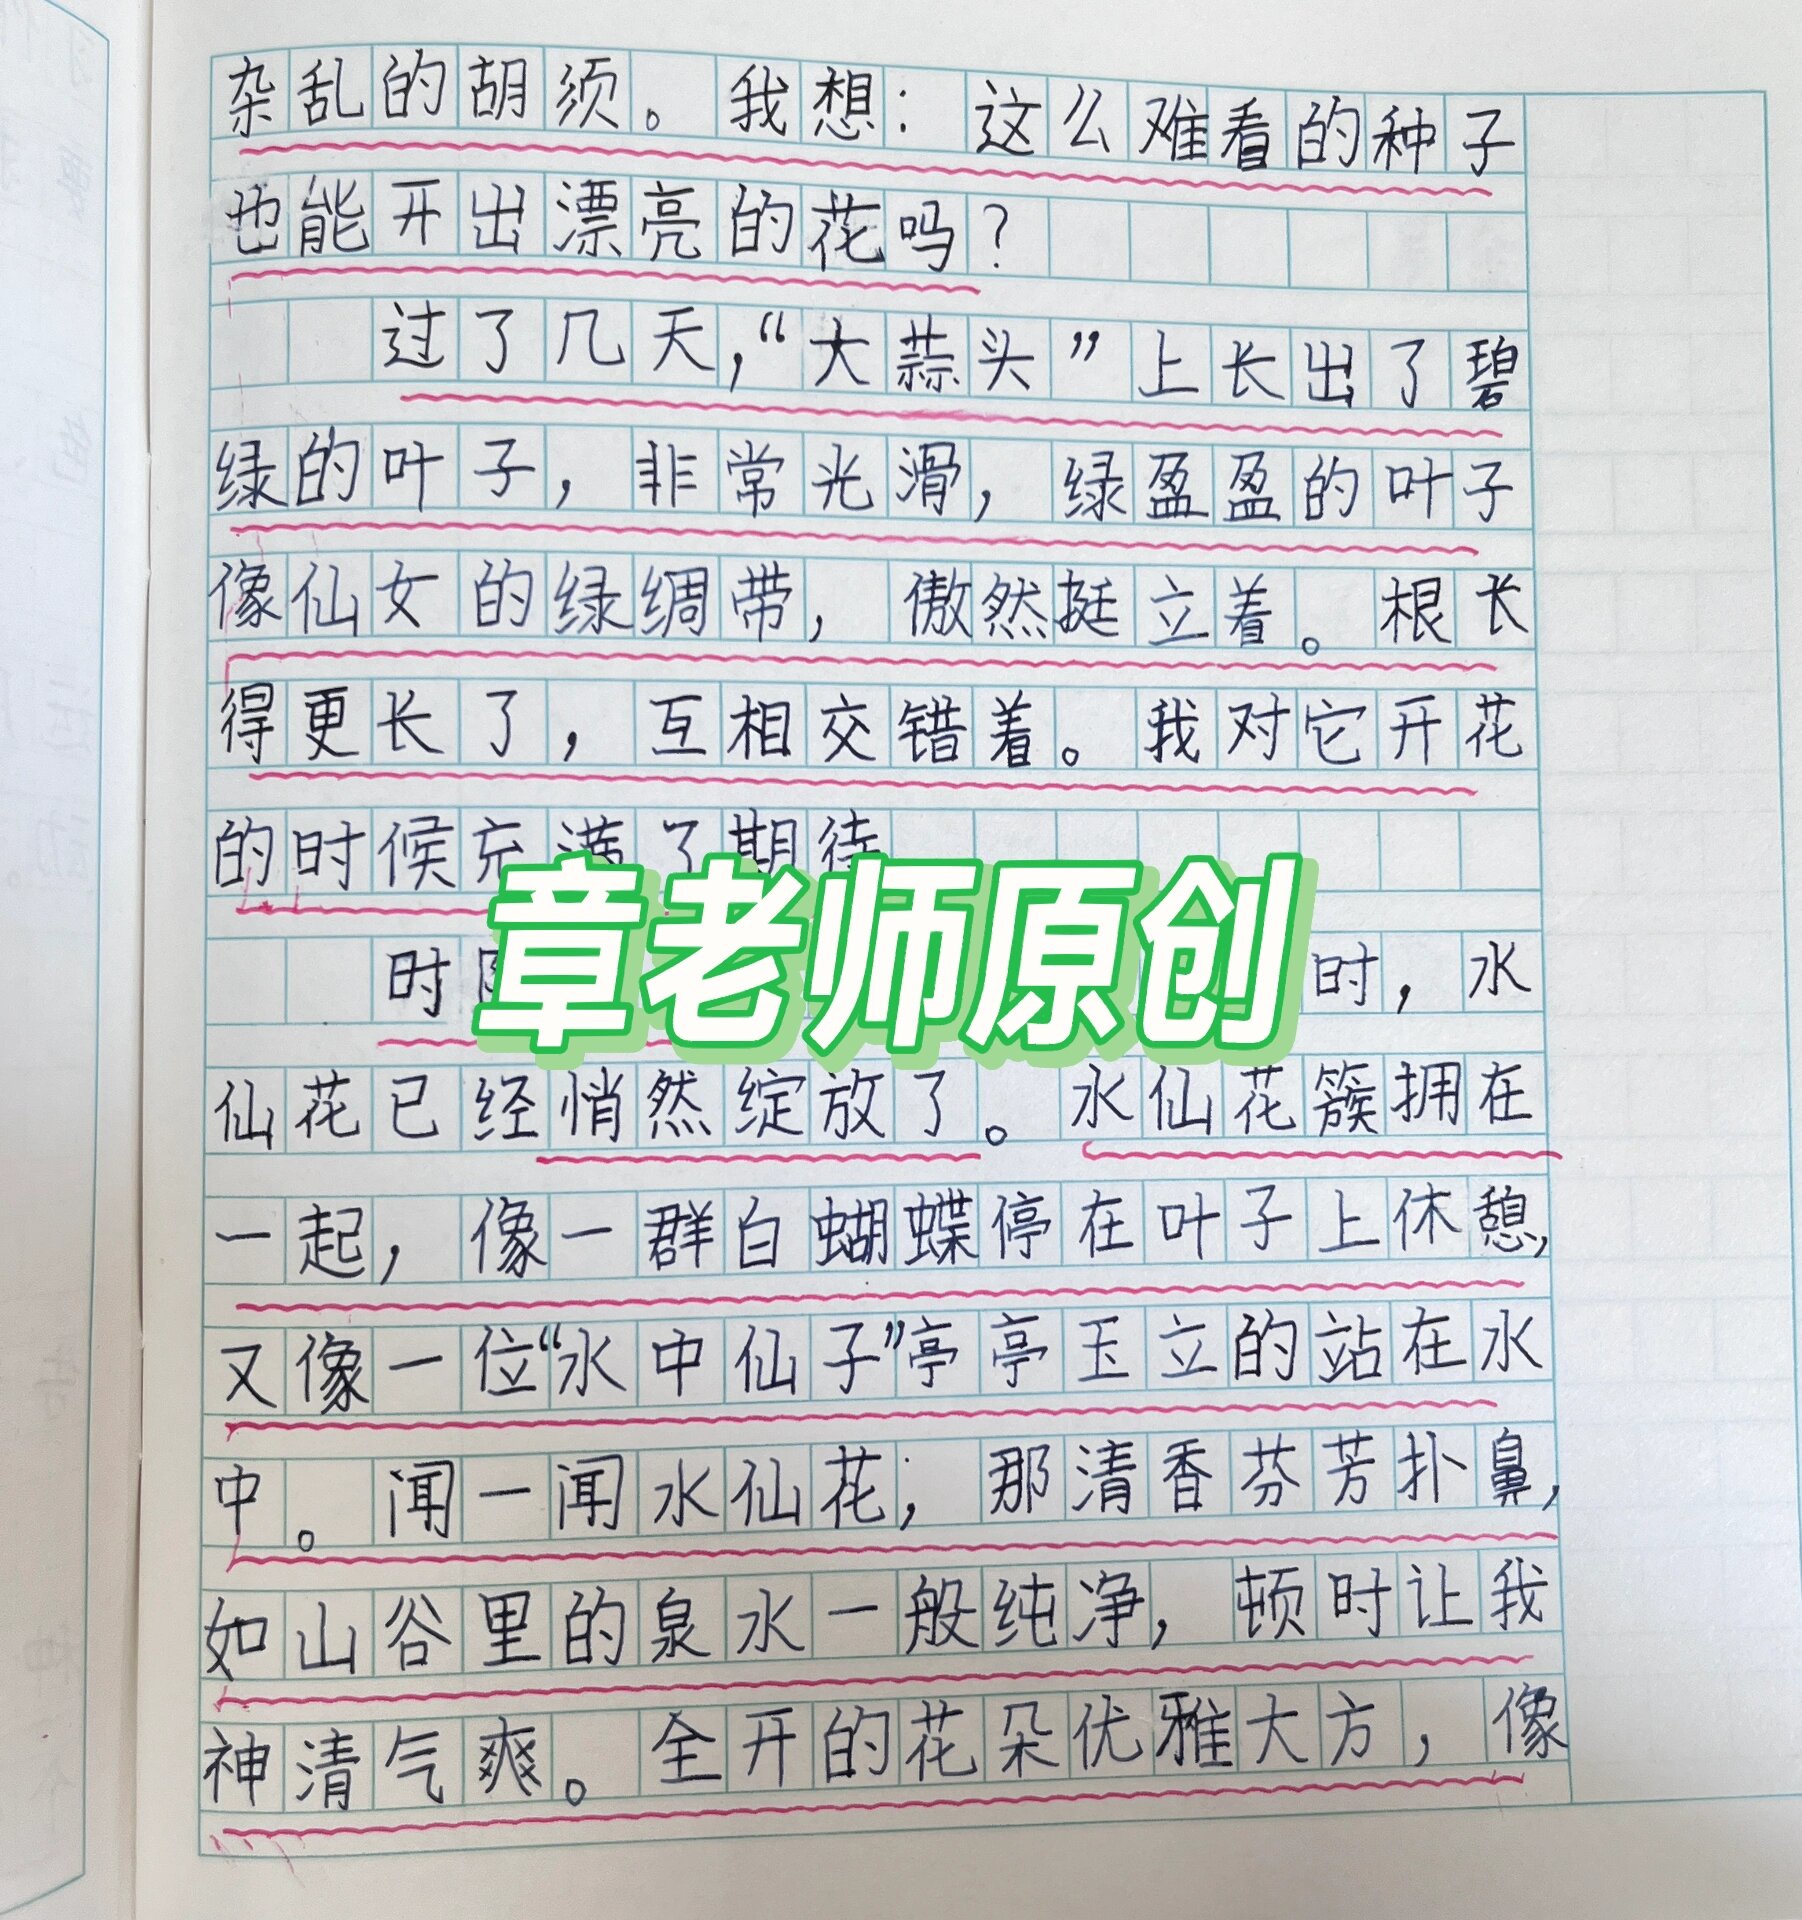 杂乱的胡须。我想：这么难看的种子
也能开出漂亮的花吗？
过了几天，“大蒜头”上长出了碧
绿的叶子，非常光滑，绿盈盈的叶子
像仙女的绿绸带，傲然挺立着。根长
得更长了，互相交错着。我对它开花
的时候充满了期待
章老师原创
时 时，水
仙花已经悄然绽放了。水仙花簇拥在
一起，像一群白蝴蝶停在叶子上休憩，
又像一位“水中仙子”亭亭玉立的站在水
中。闻一闻水仙花，那清香芬芳扑鼻，
如山谷里的泉水一般纯净，顿时让我
神清气爽。全开的花朵优雅大方，像